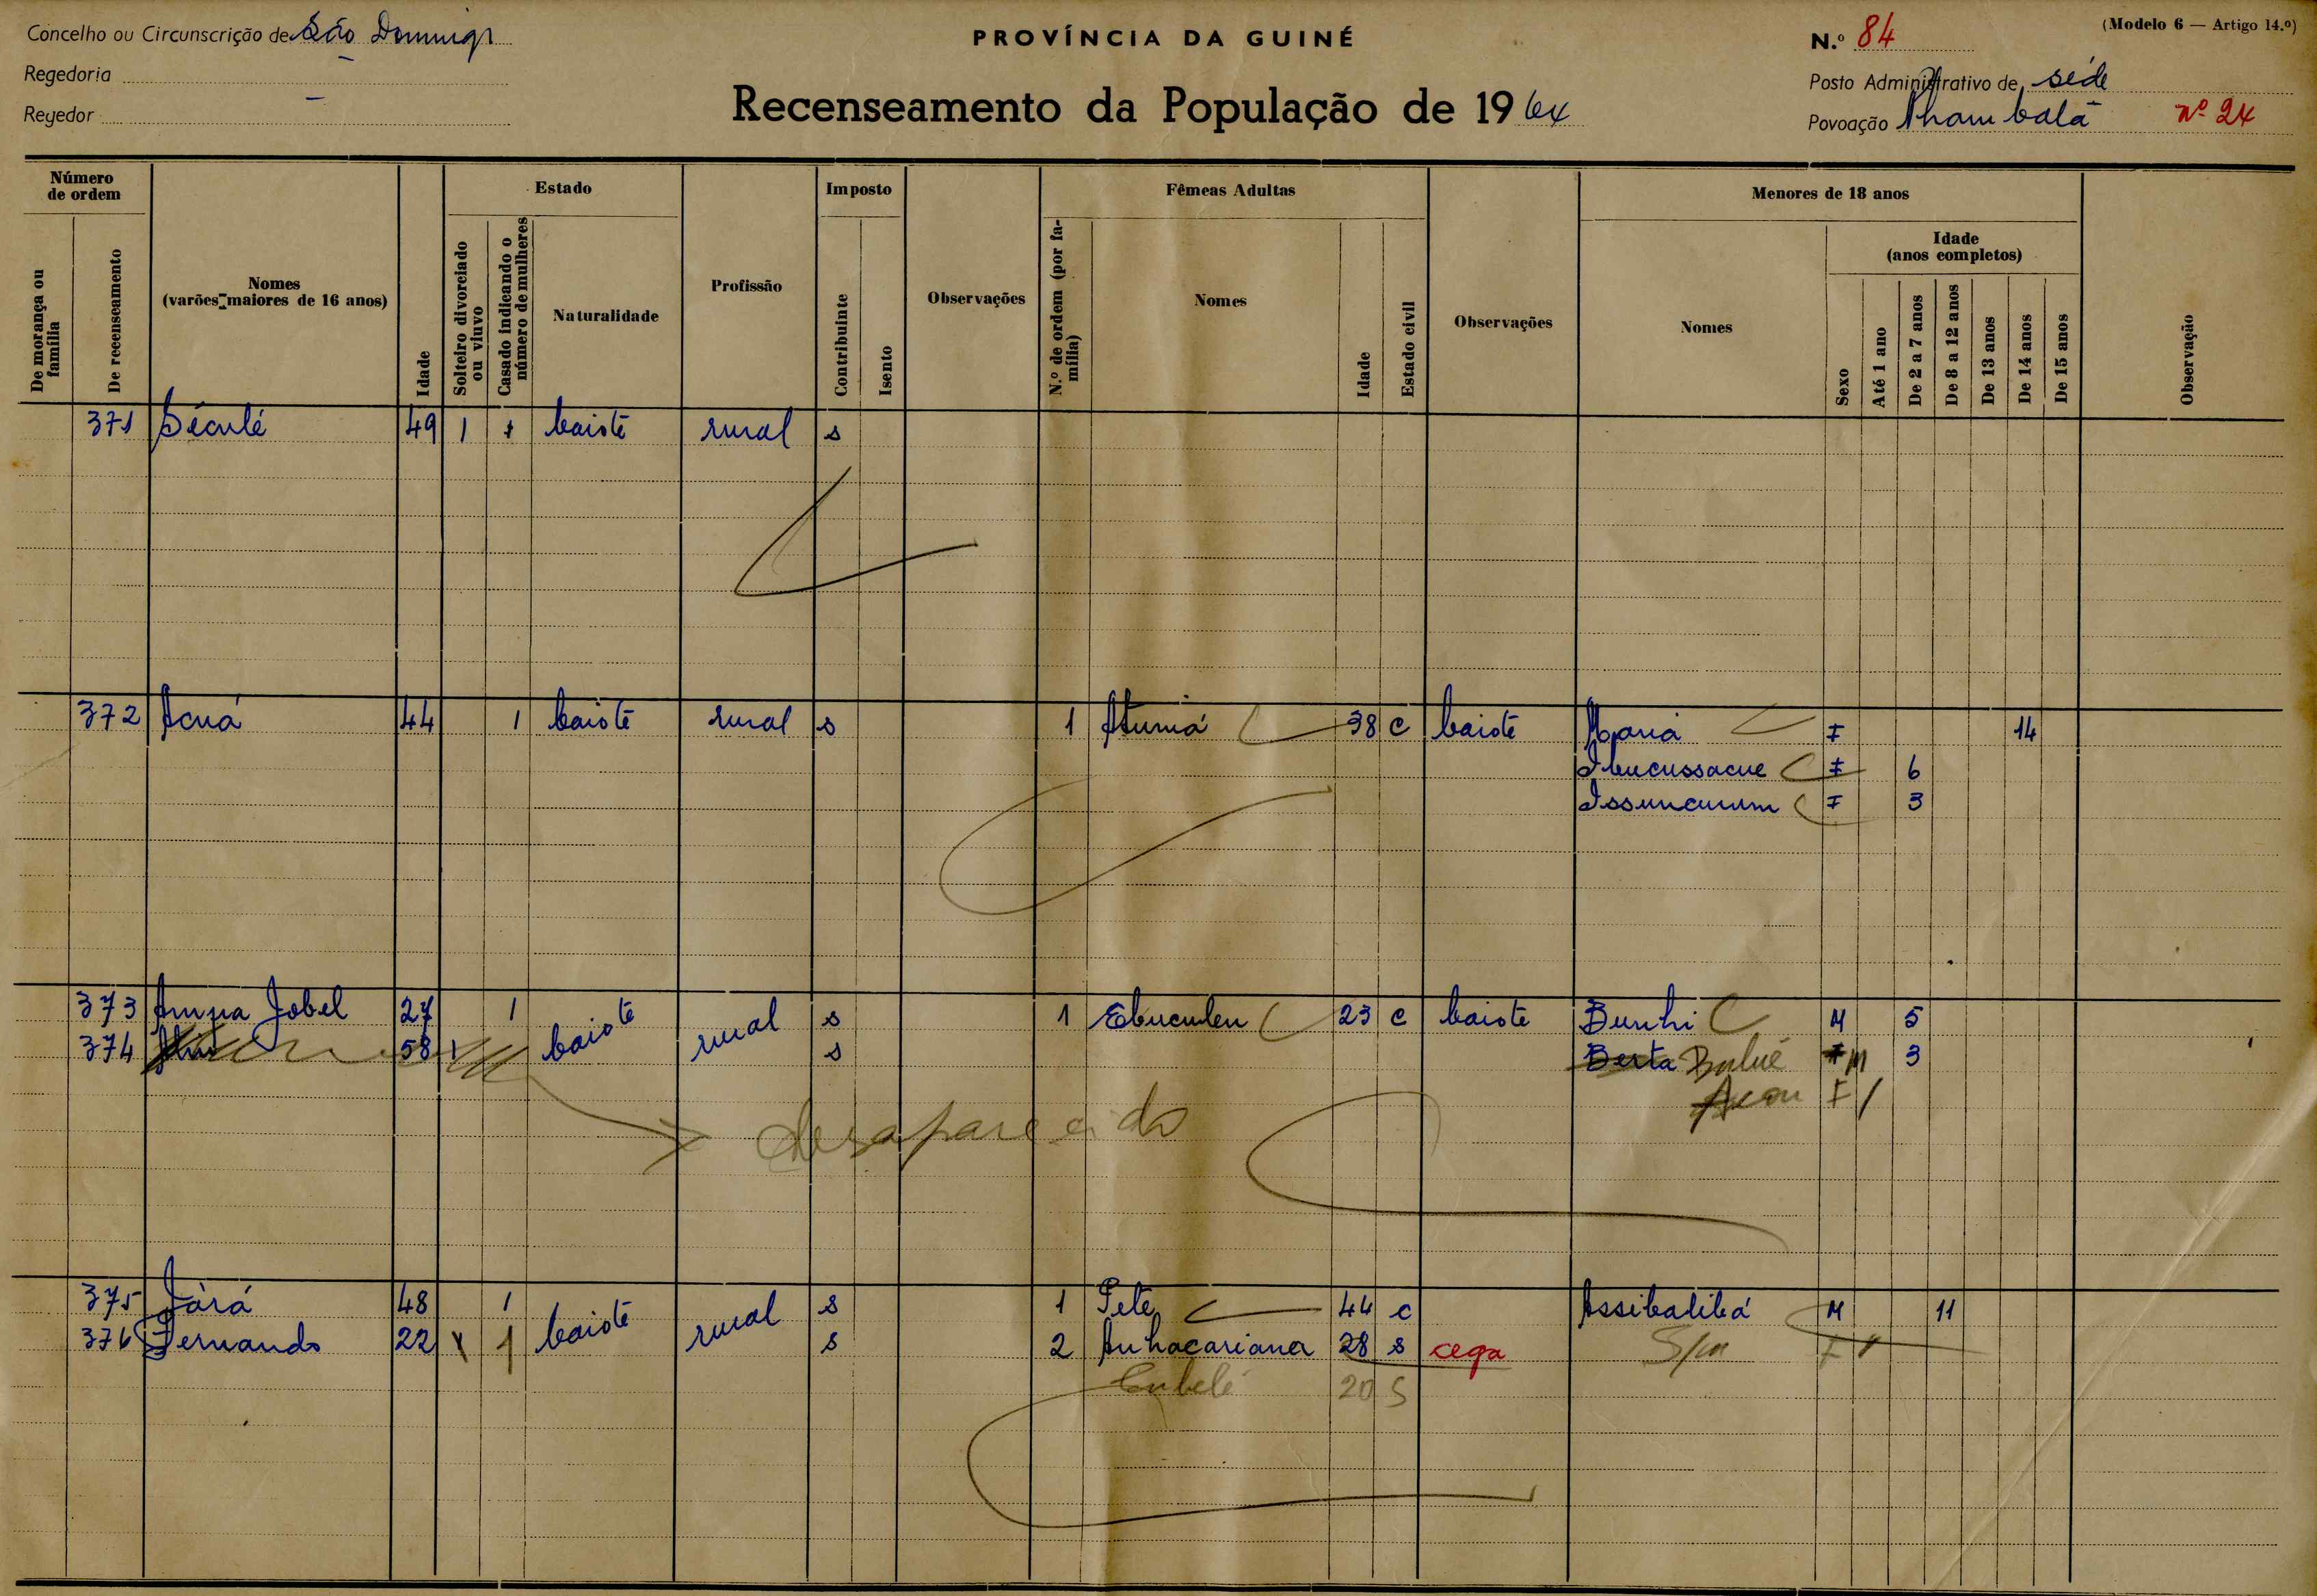 Concelho ou Circunscrição de São Domingos
PROVÍNCIA DA GUINÉ
N.º 84
(Modelo 6 — Artigo 14.º)
Regedoria —
Posto Administrativo de séde
Regedor —
Recenseamento da População de 1964
Povoação Nhambalã nº 24
Número de ordem
De morança ou família
De recenseamento
Nomes (varões maiores de 16 anos)
Idade
Estado
Solteiro divorciado ou viuvo
Casado indicando o número de mulheres
Naturalidade
Profissão
Imposto
Contribuinte
Isento
Observações
Fêmeas Adultas
N.º de ordem (por família)
Nomes
Idade
Estado civil
Observações
Menores de 18 anos
Nomes
Idade (anos completos)
Sexo
Até 1 ano
De 2 a 7 anos
De 8 a 12 anos
De 13 anos
De 14 anos
De 15 anos
Observação
371 49 1 baiote rural s
372 Acuá 44 1 baiote rural s 1 Atumá 38 C baiote F 14
F 6
Issuncurum F 3
373 Jobel 27 1 baiote rural s 1 Ebuculen 23 C baiote Bunhi M 5
374 58 1 s Berta F M 3
F /
desaparecido
375 Járá 48 1 baiote rural s 1 Pete 44 C Assibalibá M 11
376 Fernando 22 1 s 2 Anhacariana 28 s cega S/m F
20 S